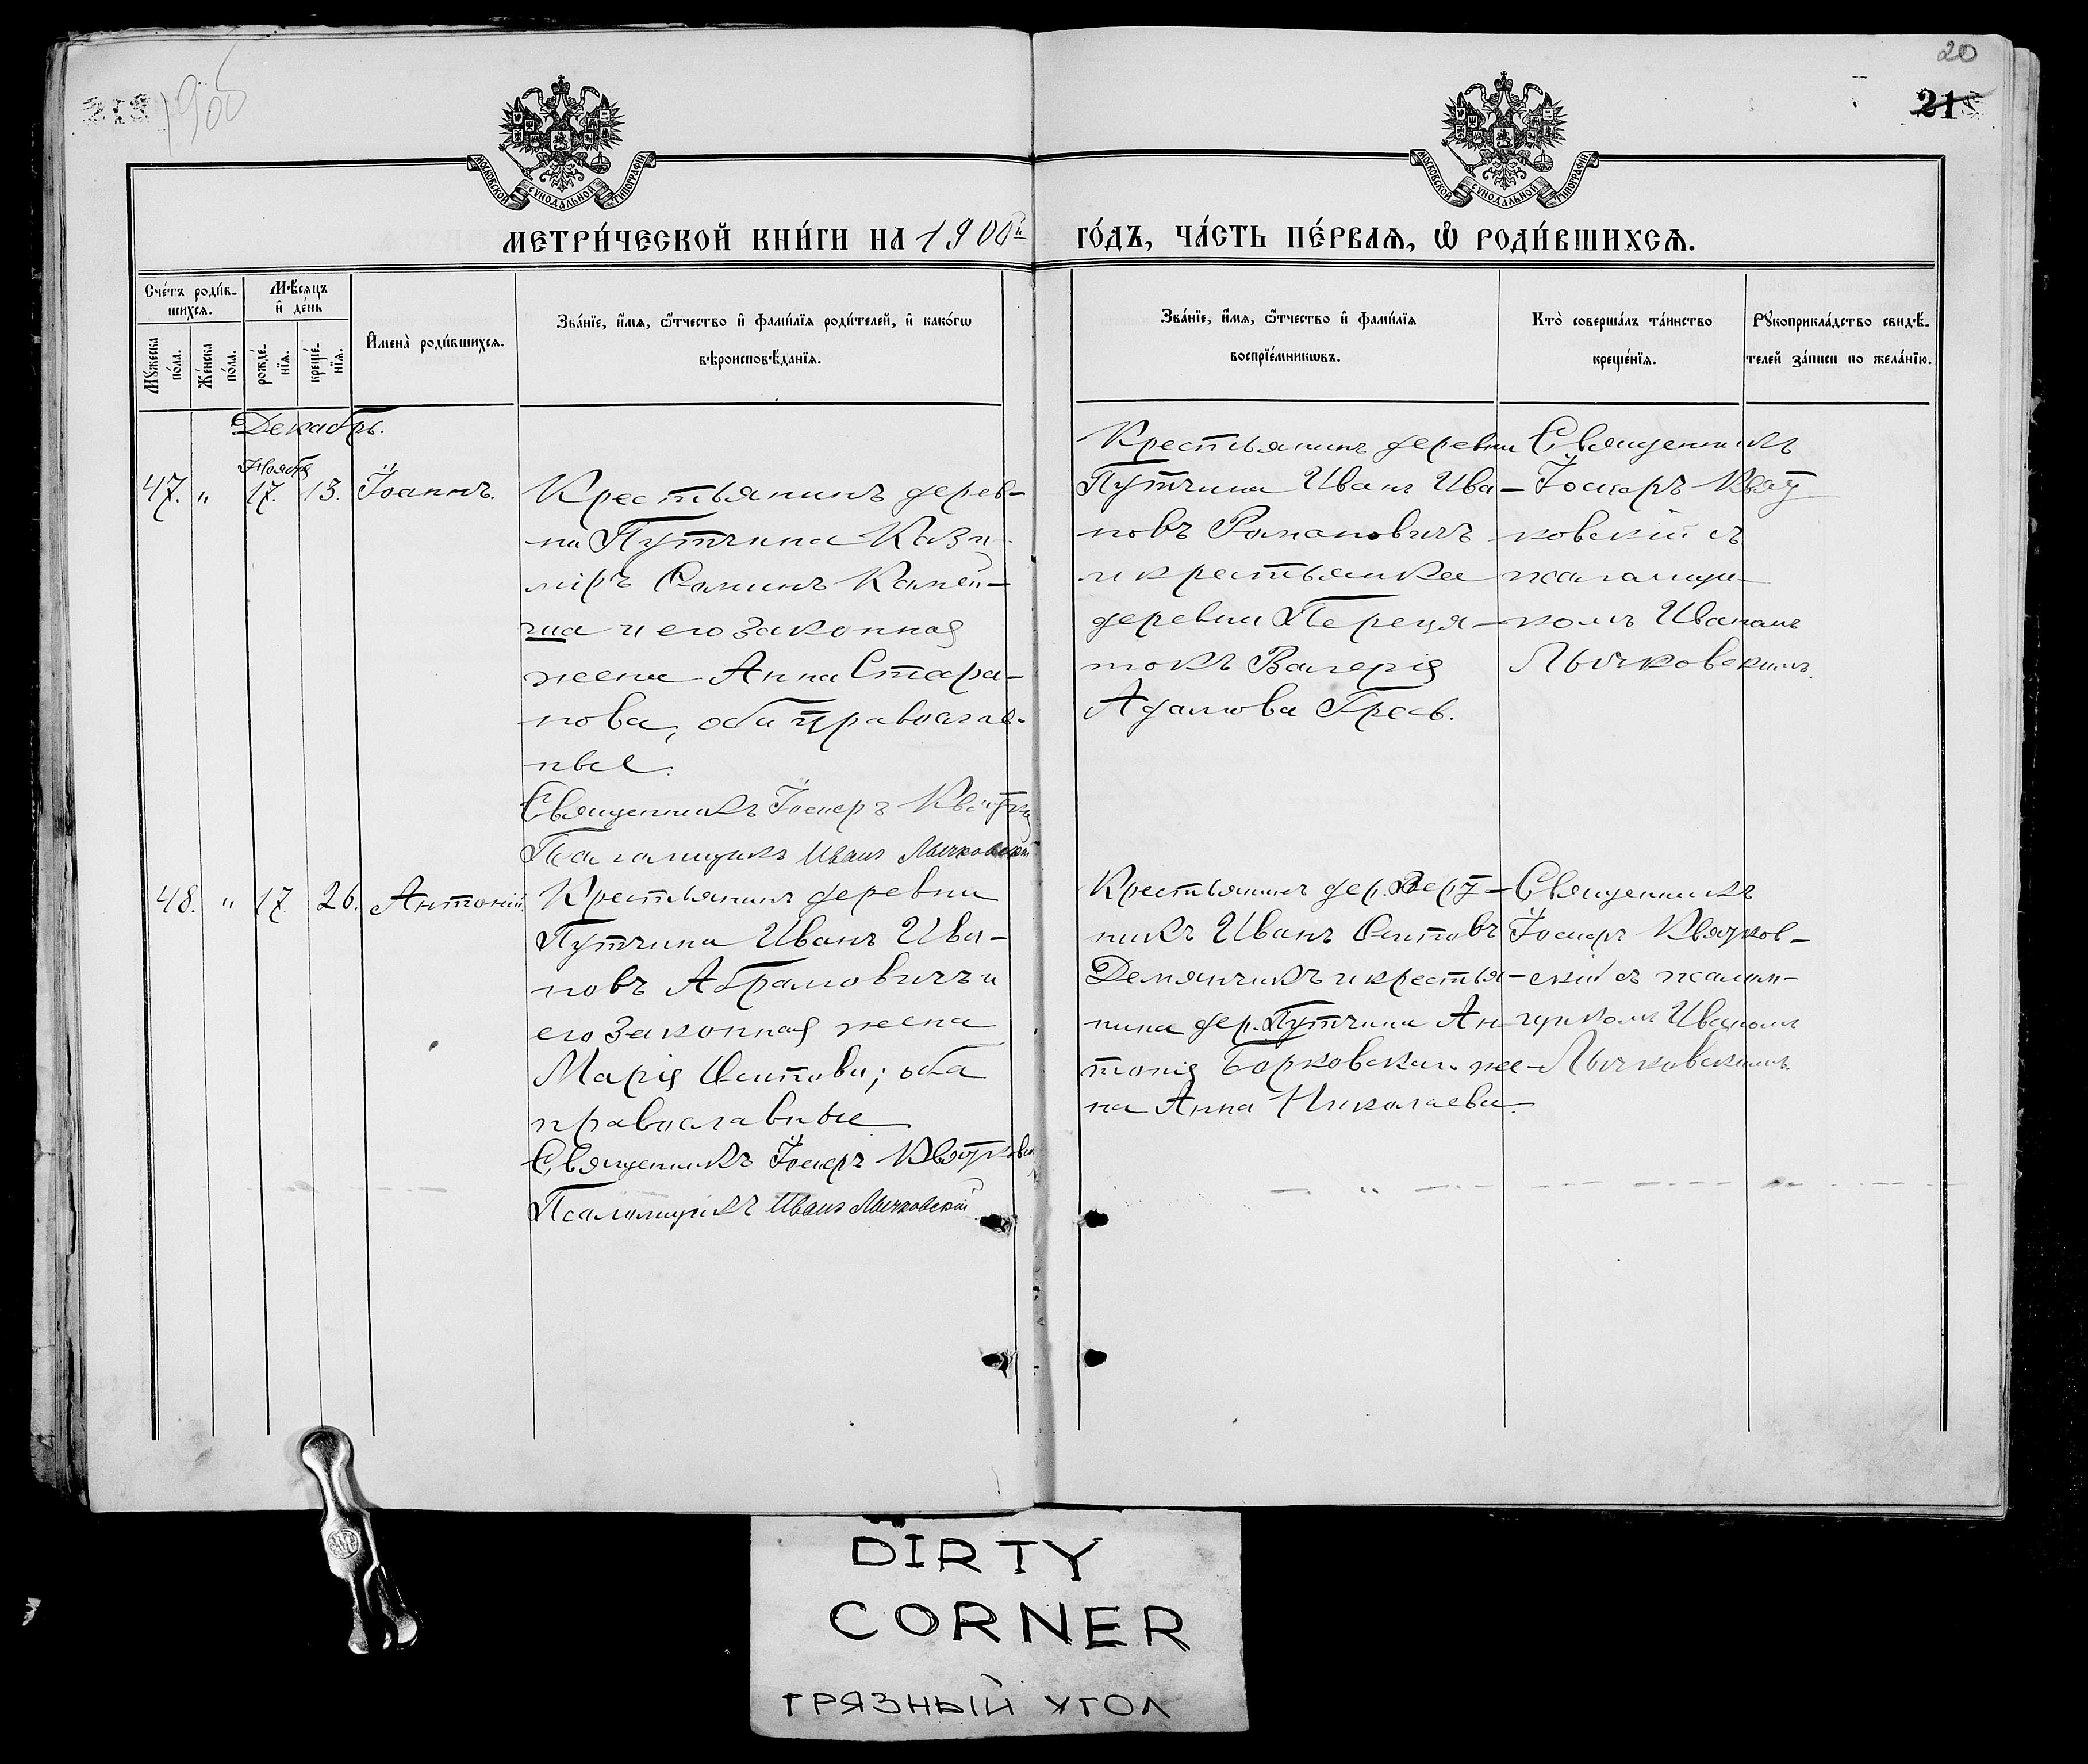 20
1900
21
МОСКОВСКОЙ СѴНОДАЛЬНОЙ ТИПОГРАФІИ
МОСКОВСКОЙ СѴНОДАЛЬНОЙ ТИПОГРАФІИ
МЕТРИ́ЧЕСКОЙ КНИ́ГИ НА 1900й ГО́ДЪ, ЧА́СТЬ ПЕ́РВАЯ, Ѡ҆ РОДИ́ВШИХСЯ.
Сче́тъ роди́в-
шихся.
Мѣ́сяцъ
и҆ де́нь
Мꙋ́жеска по́ла.
Же́нска по́ла.
рожде́-
нїя.
креще́-
нїя.
И҆мена̀ роди́вшихся.
Зва́нїе, и҆́мя, ѻ҆́тчество и҆ фами́лїя роди́телей, и҆ како́гѡ
вѣроисповѣ́данїя.
Зва́нїе, и҆́мя, ѻ҆́тчество и҆ фами́лїя
воспрїе́мникѡвъ.
Кто̀ соверша́лъ та́инство
креще́нїя.
Рꙋкоприкла́дство свидѣ́-
телей за́писи по жела́нїю.
Декабрь.
Ноября
47. " 17. 13. Іоаннъ.
Крестьянинъ дерев-
ни Путчина Кази-
міръ Саминъ Камей-
ша и его законная
жена Анна Стефа-
нова, оба православ-
ные.
Священникъ Іосифъ
Псаломщикъ Иванъ Лычковскій
Крестьянинъ деревни
Путчина Иванъ Ива-
новъ Романовичъ
и крестьянка
деревни Переця-
токъ Валерія
Адамова Гресь.
Священникъ
Іосифъ Квят-
ковскій съ
псаломщи-
комъ Иваномъ
Лычковскимъ.
48. " 17. 26. Антоній.
Крестьянинъ деревни
Путчина Иванъ Ива-
новъ Абрамовичъ и
его законная жена
Марія Осипова; оба
православные
Священникъ Іосифъ Квятковск
Псаломщикъ Иванъ Лычковскій
Крестьянинъ дер.
никъ Иванъ Осиповъ
Демянчикъ и крестья-
нина дер. Путчина Ан-
тонія Борковскаго же-
на Анна Николаева.
Священникъ
Іосифъ Квятков-
скій съ псалом-
щикомъ Иваномъ
Лычковскимъ.
DIRTY
CORNER
ГРЯЗНЫЙ УГОЛ